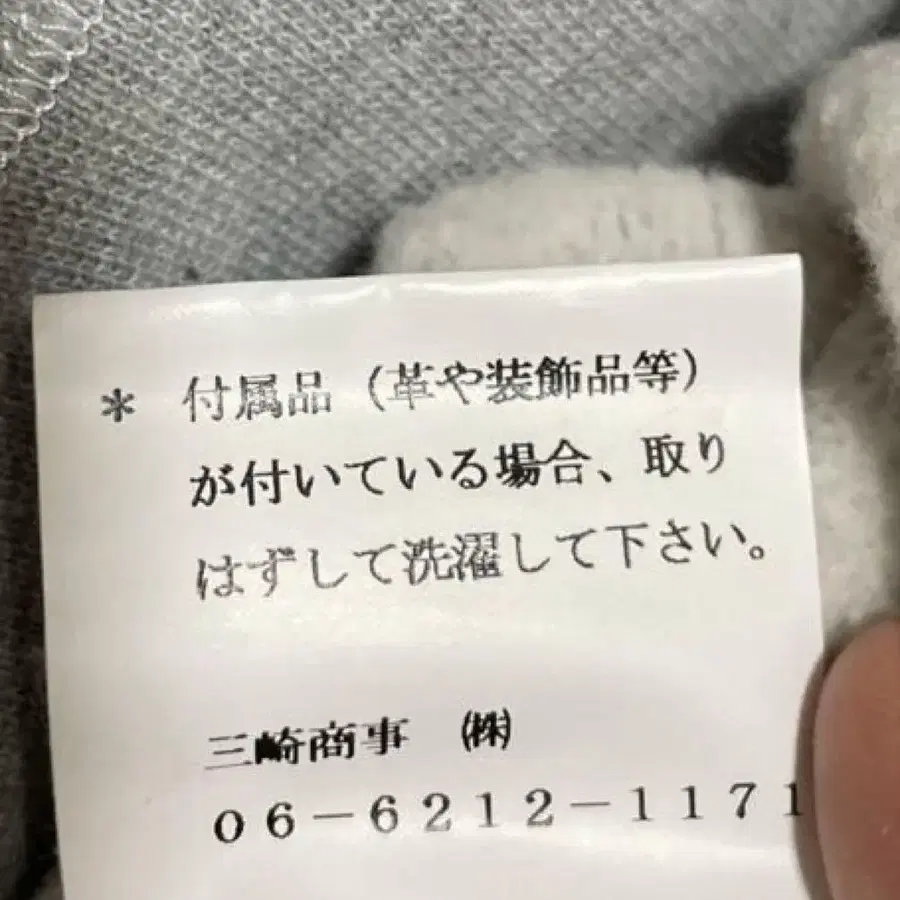 * 付属品（革や装飾品等）
が付いている場合、取り
はずして洗濯して下さい。
三崎商事 ㈱
06-6212-1171